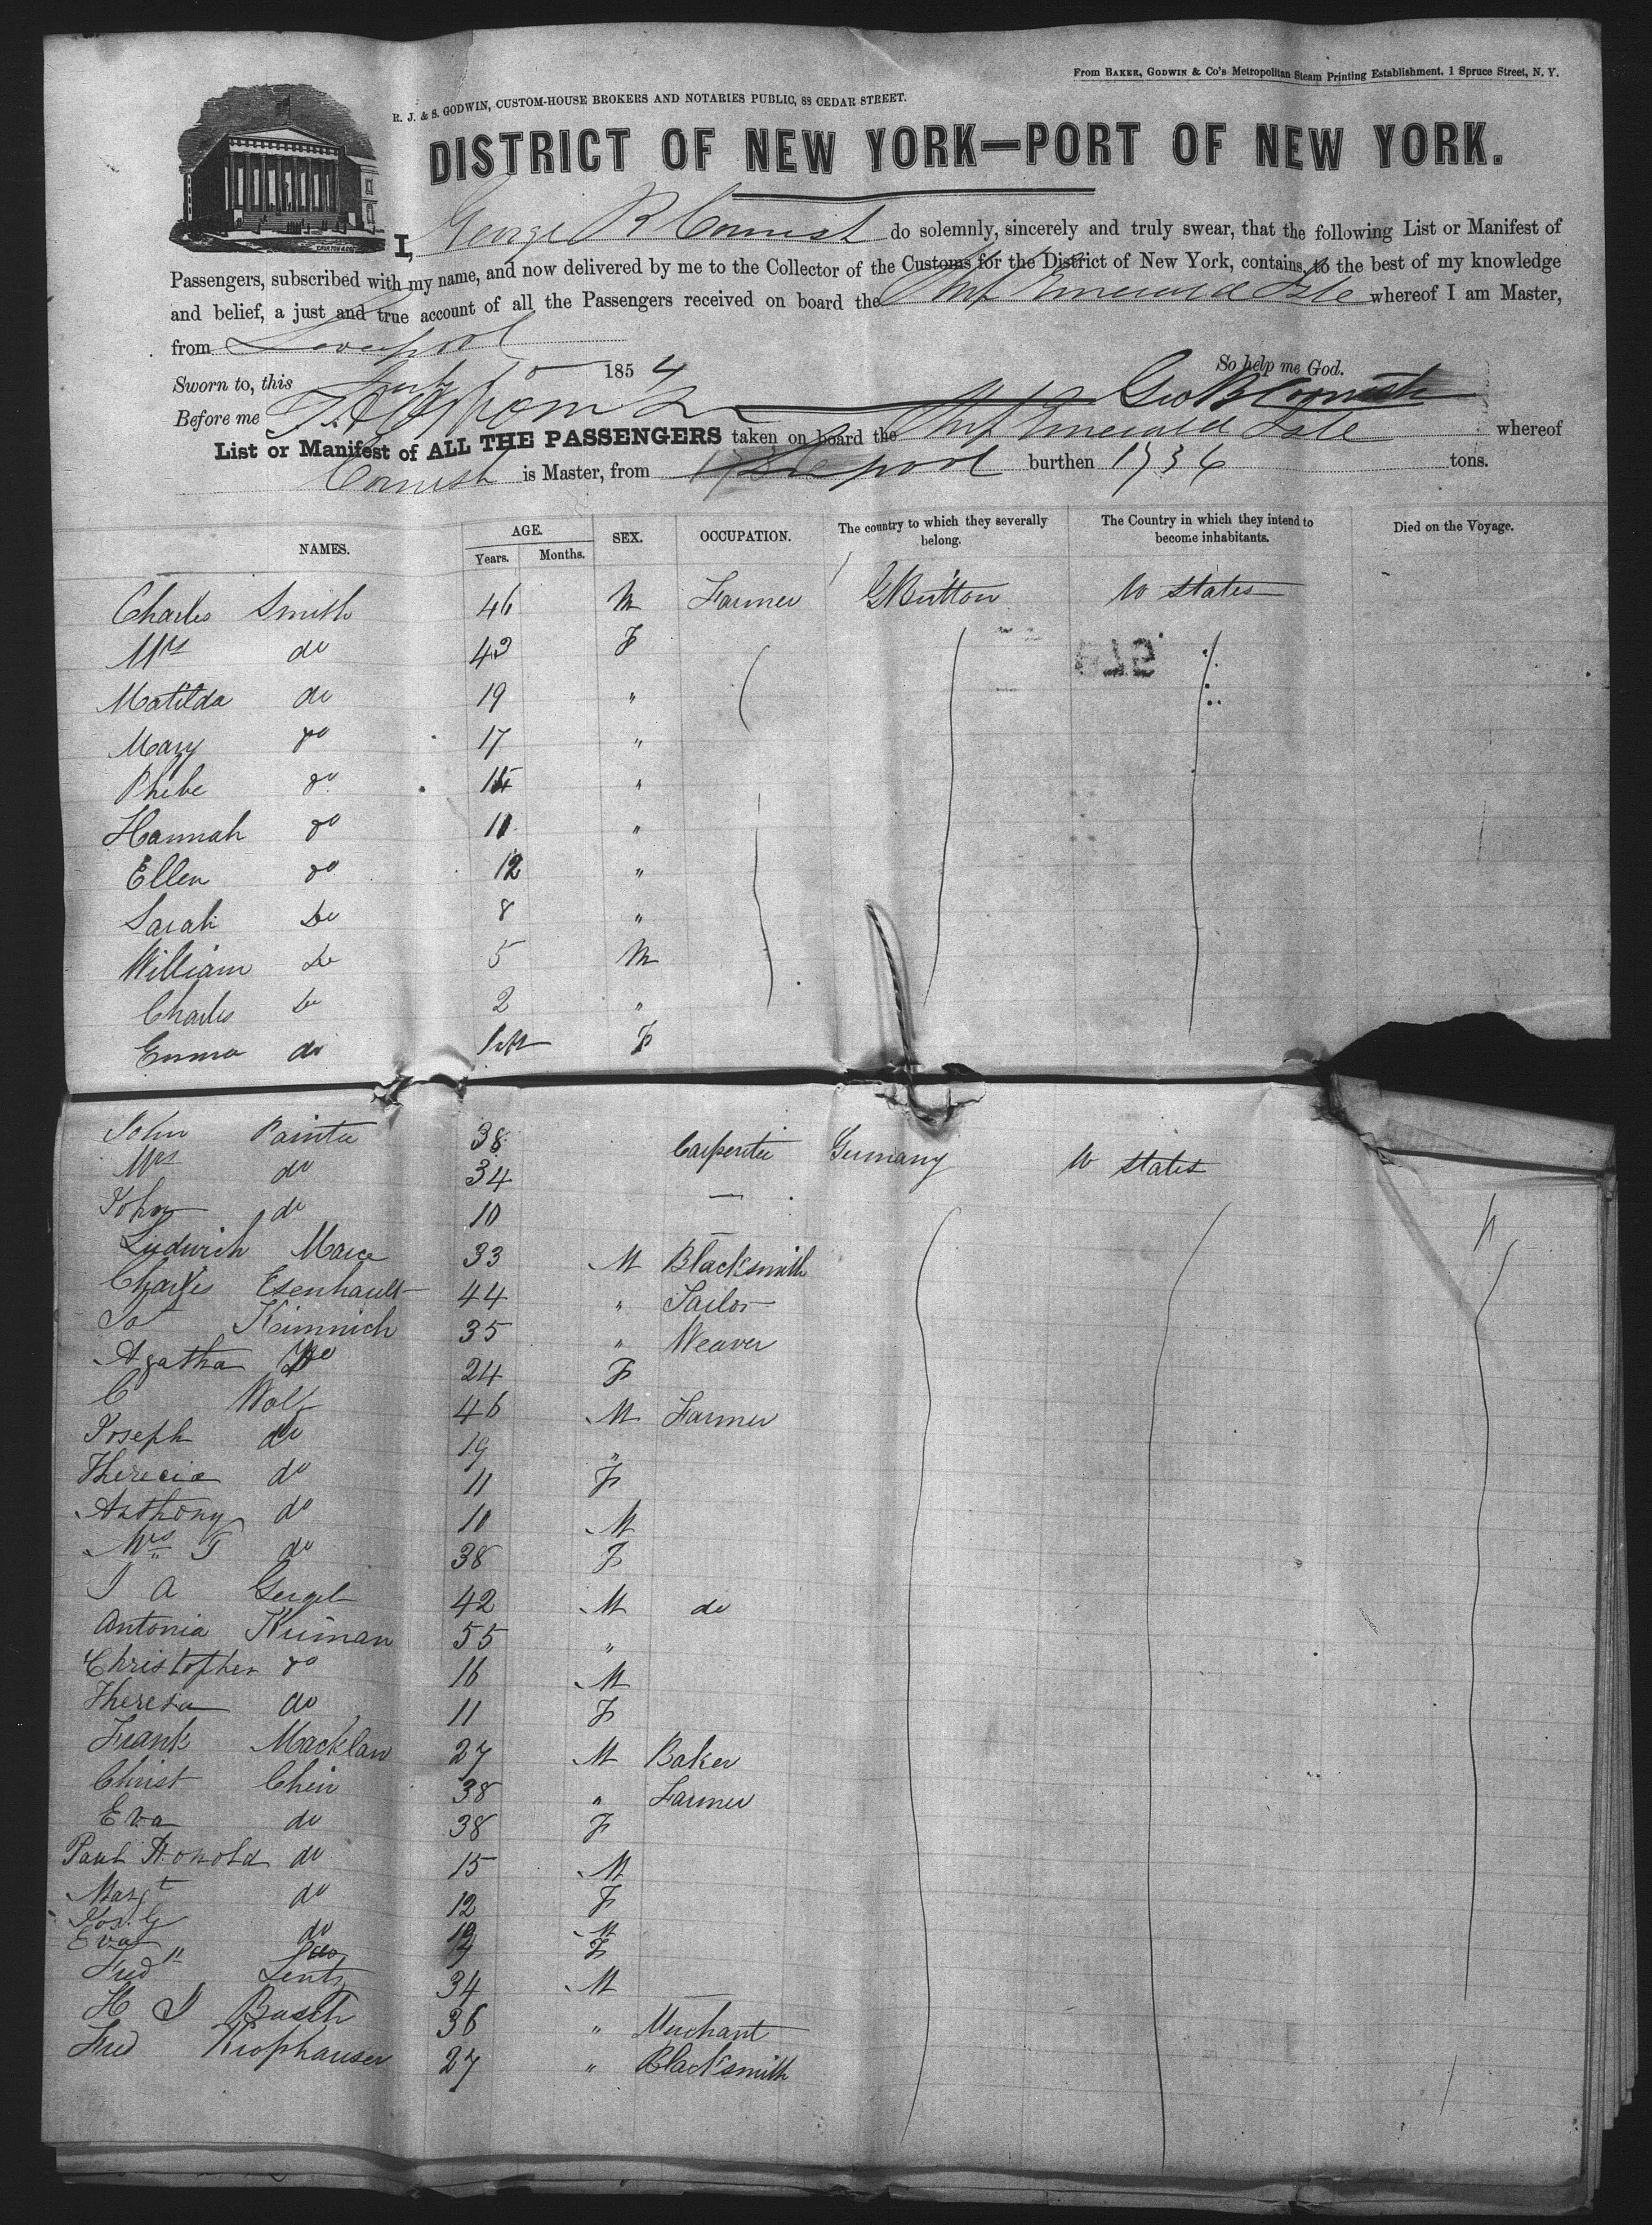 From BAKER, GODWIN & Co's Metropolitan Steam Printing Establishment, 1 Spruce Street, N. Y.
R. J. & S. GODWIN, CUSTOM-HOUSE BROKERS AND NOTARIES PUBLIC, 88 CEDAR STREET.
DISTRICT OF NEW YORK—PORT OF NEW YORK.
I, George B Cornish do solemnly, sincerely and truly swear, that the following List or Manifest of
Passengers, subscribed with my name, and now delivered by me to the Collector of the Customs for the District of New York, contains, to the best of my knowledge
and belief, a just and true account of all the Passengers received on board the Ship Emerald Isle whereof I am Master,
from Liverpool
So help me God.
Sworn to, this 1854
Before me Geo B Cornish
List or Manifest of ALL THE PASSENGERS taken on board the Ship Emerald Isle whereof
Cornish is Master, from Lpool burthen 1736 tons.
NAMES. AGE. Years. Months. SEX. OCCUPATION. The country to which they severally belong. The Country in which they intend to become inhabitants. Died on the Voyage.
Charles Smith 46 M Farmer G Britton U states
Mrs do 43 F
Matilda do 19 "
Mary do 17 "
Phebe do "
Hannah do 11 "
Ellen do 12 "
Sarah do 8 "
William do 5 M
Charles do 2 "
Emma do inft F
John Painter 38 Carpenter Germany U states
Mrs do 34 —
John do 10
Ludwich 33 M Blacksmith
Charles Esenhault 44 " Tailor
Jo Kimmich 35 " Weaver
Agatha do 24 F
C Wolf 46 M Farmer
Joseph do 19 "
Therecia do 11 F
Anthony do 10 M
Mrs G do 38 F
J A 42 M do
Antonia Kuman 55 "
Christopher do 16 M
Theresa do 11 F
Frank Macklan 27 M Baker
Christ Chein 38 " Farmer
Eva do 38 F
Paul do 15 M
Margt do 12 F
Jos. G do M
Eva do F
Fredk Lentz 34 M
H J Busch 36 " Merchant
Fred Kiophauser 27 " Blacksmith